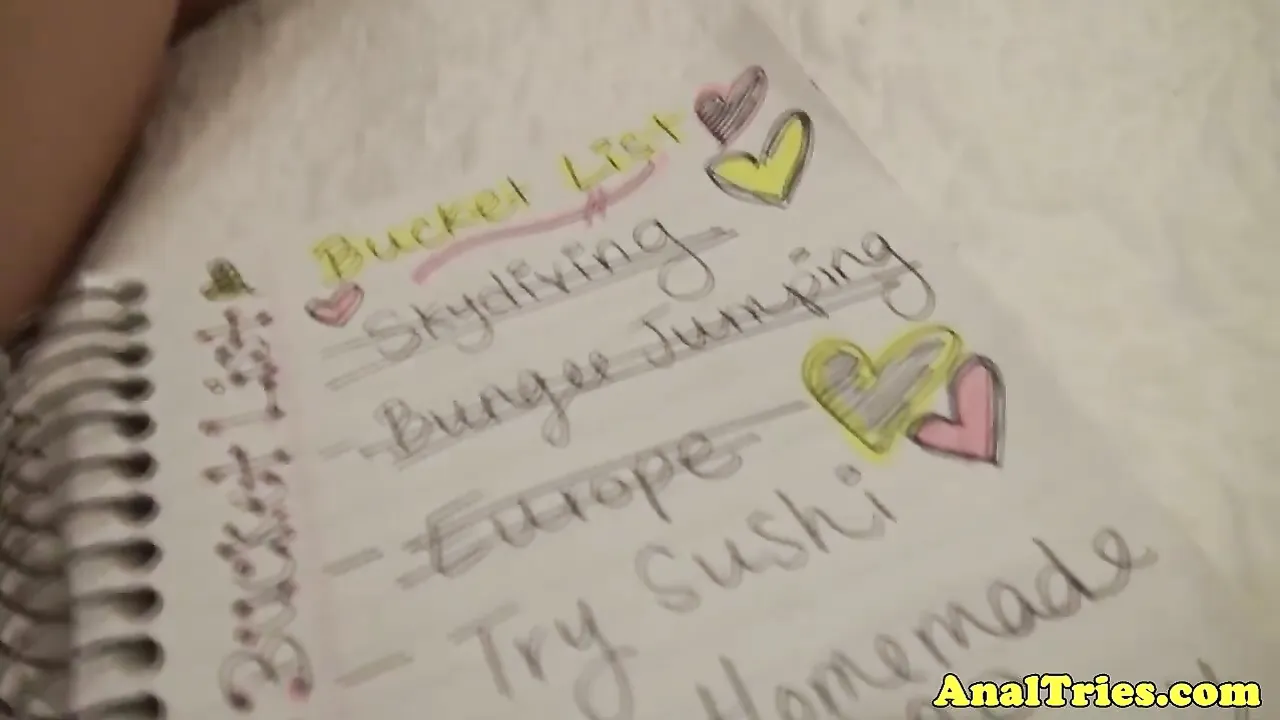 Bucket List
Skydiving
Bungee Jumping
Europe
Try Sushi
Homemade
Bucket List
AnalTries.com